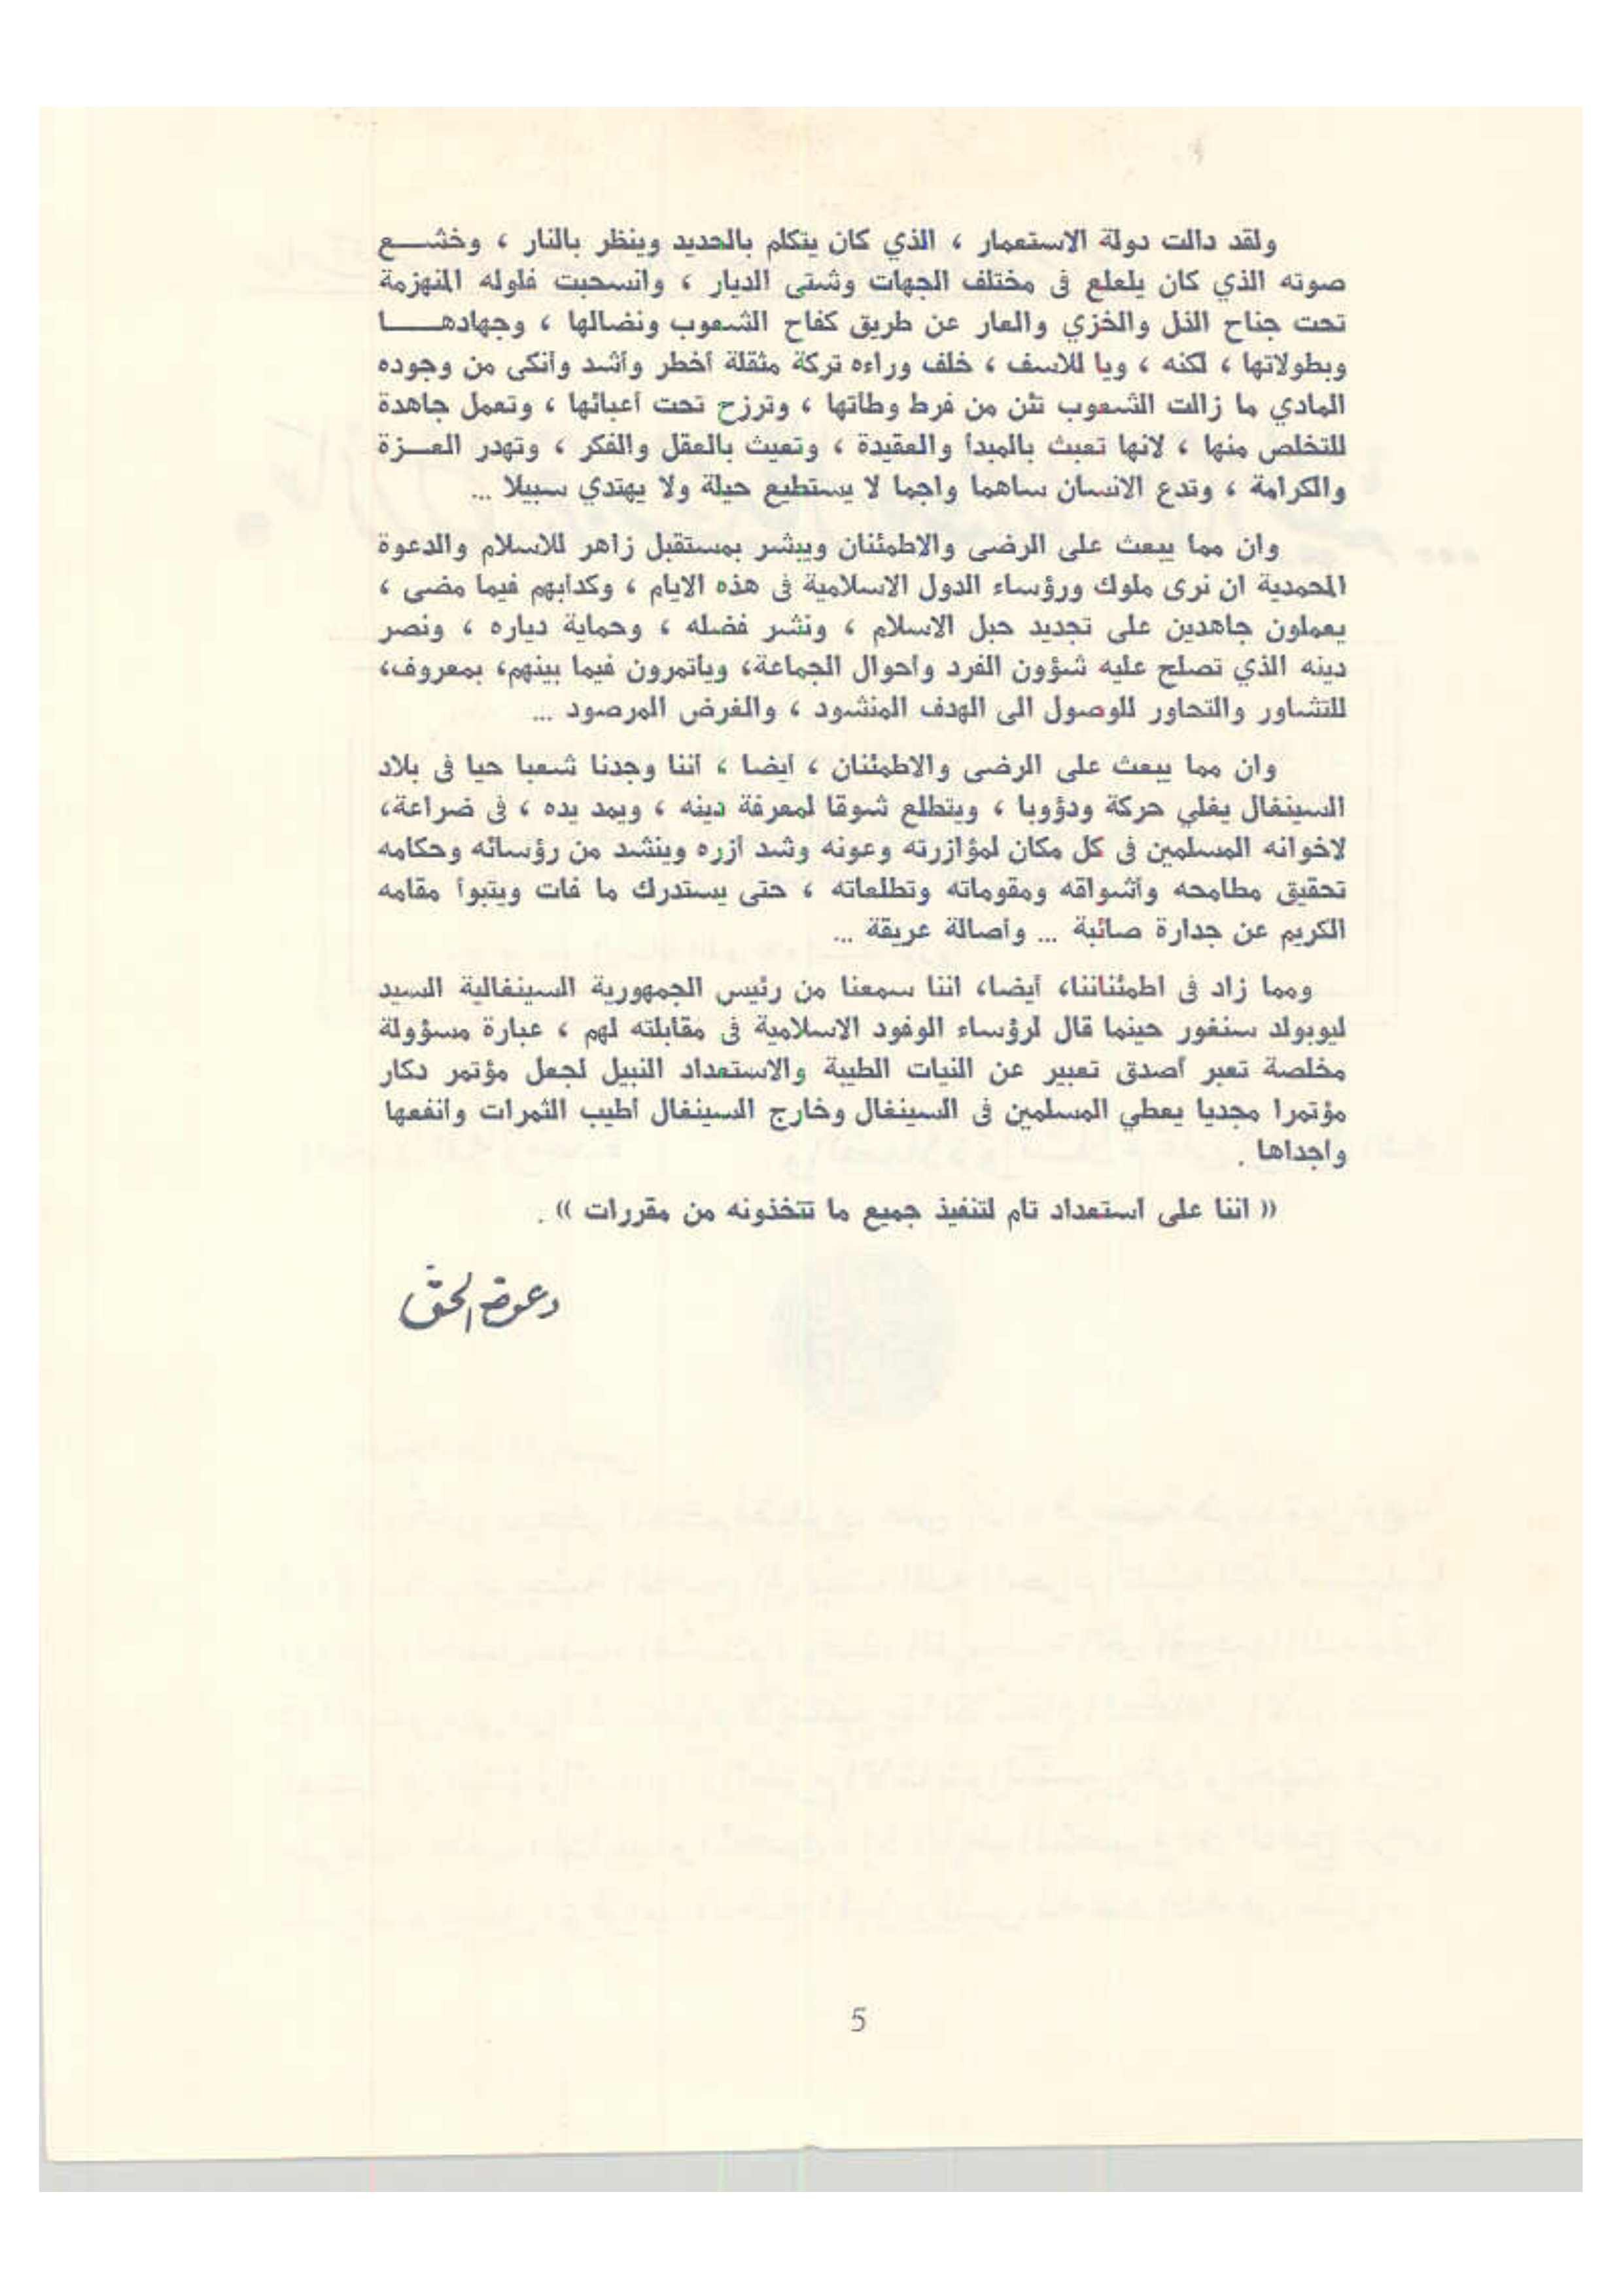 ولقد دالت دولة الاستعمار ، الذي كان يتكلم بالحديد وينظر بالنار ، وخشع
صوته الذي كان يلعلع فى مختلف الجهات وشتى الديار ، وانسحبت فلوله المنهزمة
تحت جناح الذل والخزي والعار عن طريق كفاح الشعوب ونضالها ، وجهادها
وبطولاتها ، لكنه ، ويا للاسف ، خلف وراءه تركة مثقلة أخطر وأشد وأنكى من وجوده
المادي ما زالت الشعوب تئن من فرط وطأتها ، وترزح تحت أعبائها ، وتعمل جاهدة
للتخلص منها ، لانها تعبث بالمبدأ والعقيدة ، وتعيث بالعقل والفكر ، وتهدر العزة
والكرامة ، وتدع الانسان ساهما واجما لا يستطيع حيلة ولا يهتدي سبيلا ...
وان مما يبعث على الرضى والاطمئنان ويبشر بمستقبل زاهر للاسلام والدعوة
المحمدية ان نرى ملوك ورؤساء الدول الاسلامية فى هذه الايام ، وكدأبهم فيما مضى ،
يعملون جاهدين على تجديد حبل الاسلام ، ونشر فضله ، وحماية دياره ، ونصر
دينه الذي تصلح عليه شؤون الفرد وأحوال الجماعة، ويأتمرون فيما بينهم، بمعروف،
للتشاور والتحاور للوصول الى الهدف المنشود ، والغرض المرصود ...
وان مما يبعث على الرضى والاطمئنان ، أيضا ، أننا وجدنا شعبا حيا فى بلاد
السينغال يغلي حركة ودؤوبا ، ويتطلع شوقا لمعرفة دينه ، ويمد يده ، فى ضراعة،
لاخوانه المسلمين فى كل مكان لمؤازرته وعونه وشد أزره وينشد من رؤسائه وحكامه
تحقيق مطامحه وأشواقه ومقوماته وتطلعاته ، حتى يستدرك ما فات ويتبوأ مقامه
الكريم عن جدارة صائبة ... وأصالة عريقة ...
ومما زاد فى اطمئناننا، أيضا، اننا سمعنا من رئيس الجمهورية السينغالية السيد
ليوبولد سنغور حينما قال لرؤساء الوفود الاسلامية فى مقابلته لهم ، عبارة مسؤولة
مخلصة تعبر أصدق تعبير عن النيات الطيبة والاستعداد النبيل لجعل مؤتمر دكار
مؤتمرا مجديا يعطي المسلمين فى السينغال وخارج السينغال أطيب الثمرات وأنفعها
واجداها .
(( اننا على استعداد تام لتنفيذ جميع ما تتخذونه من مقررات )) .
دعوة الحق
5